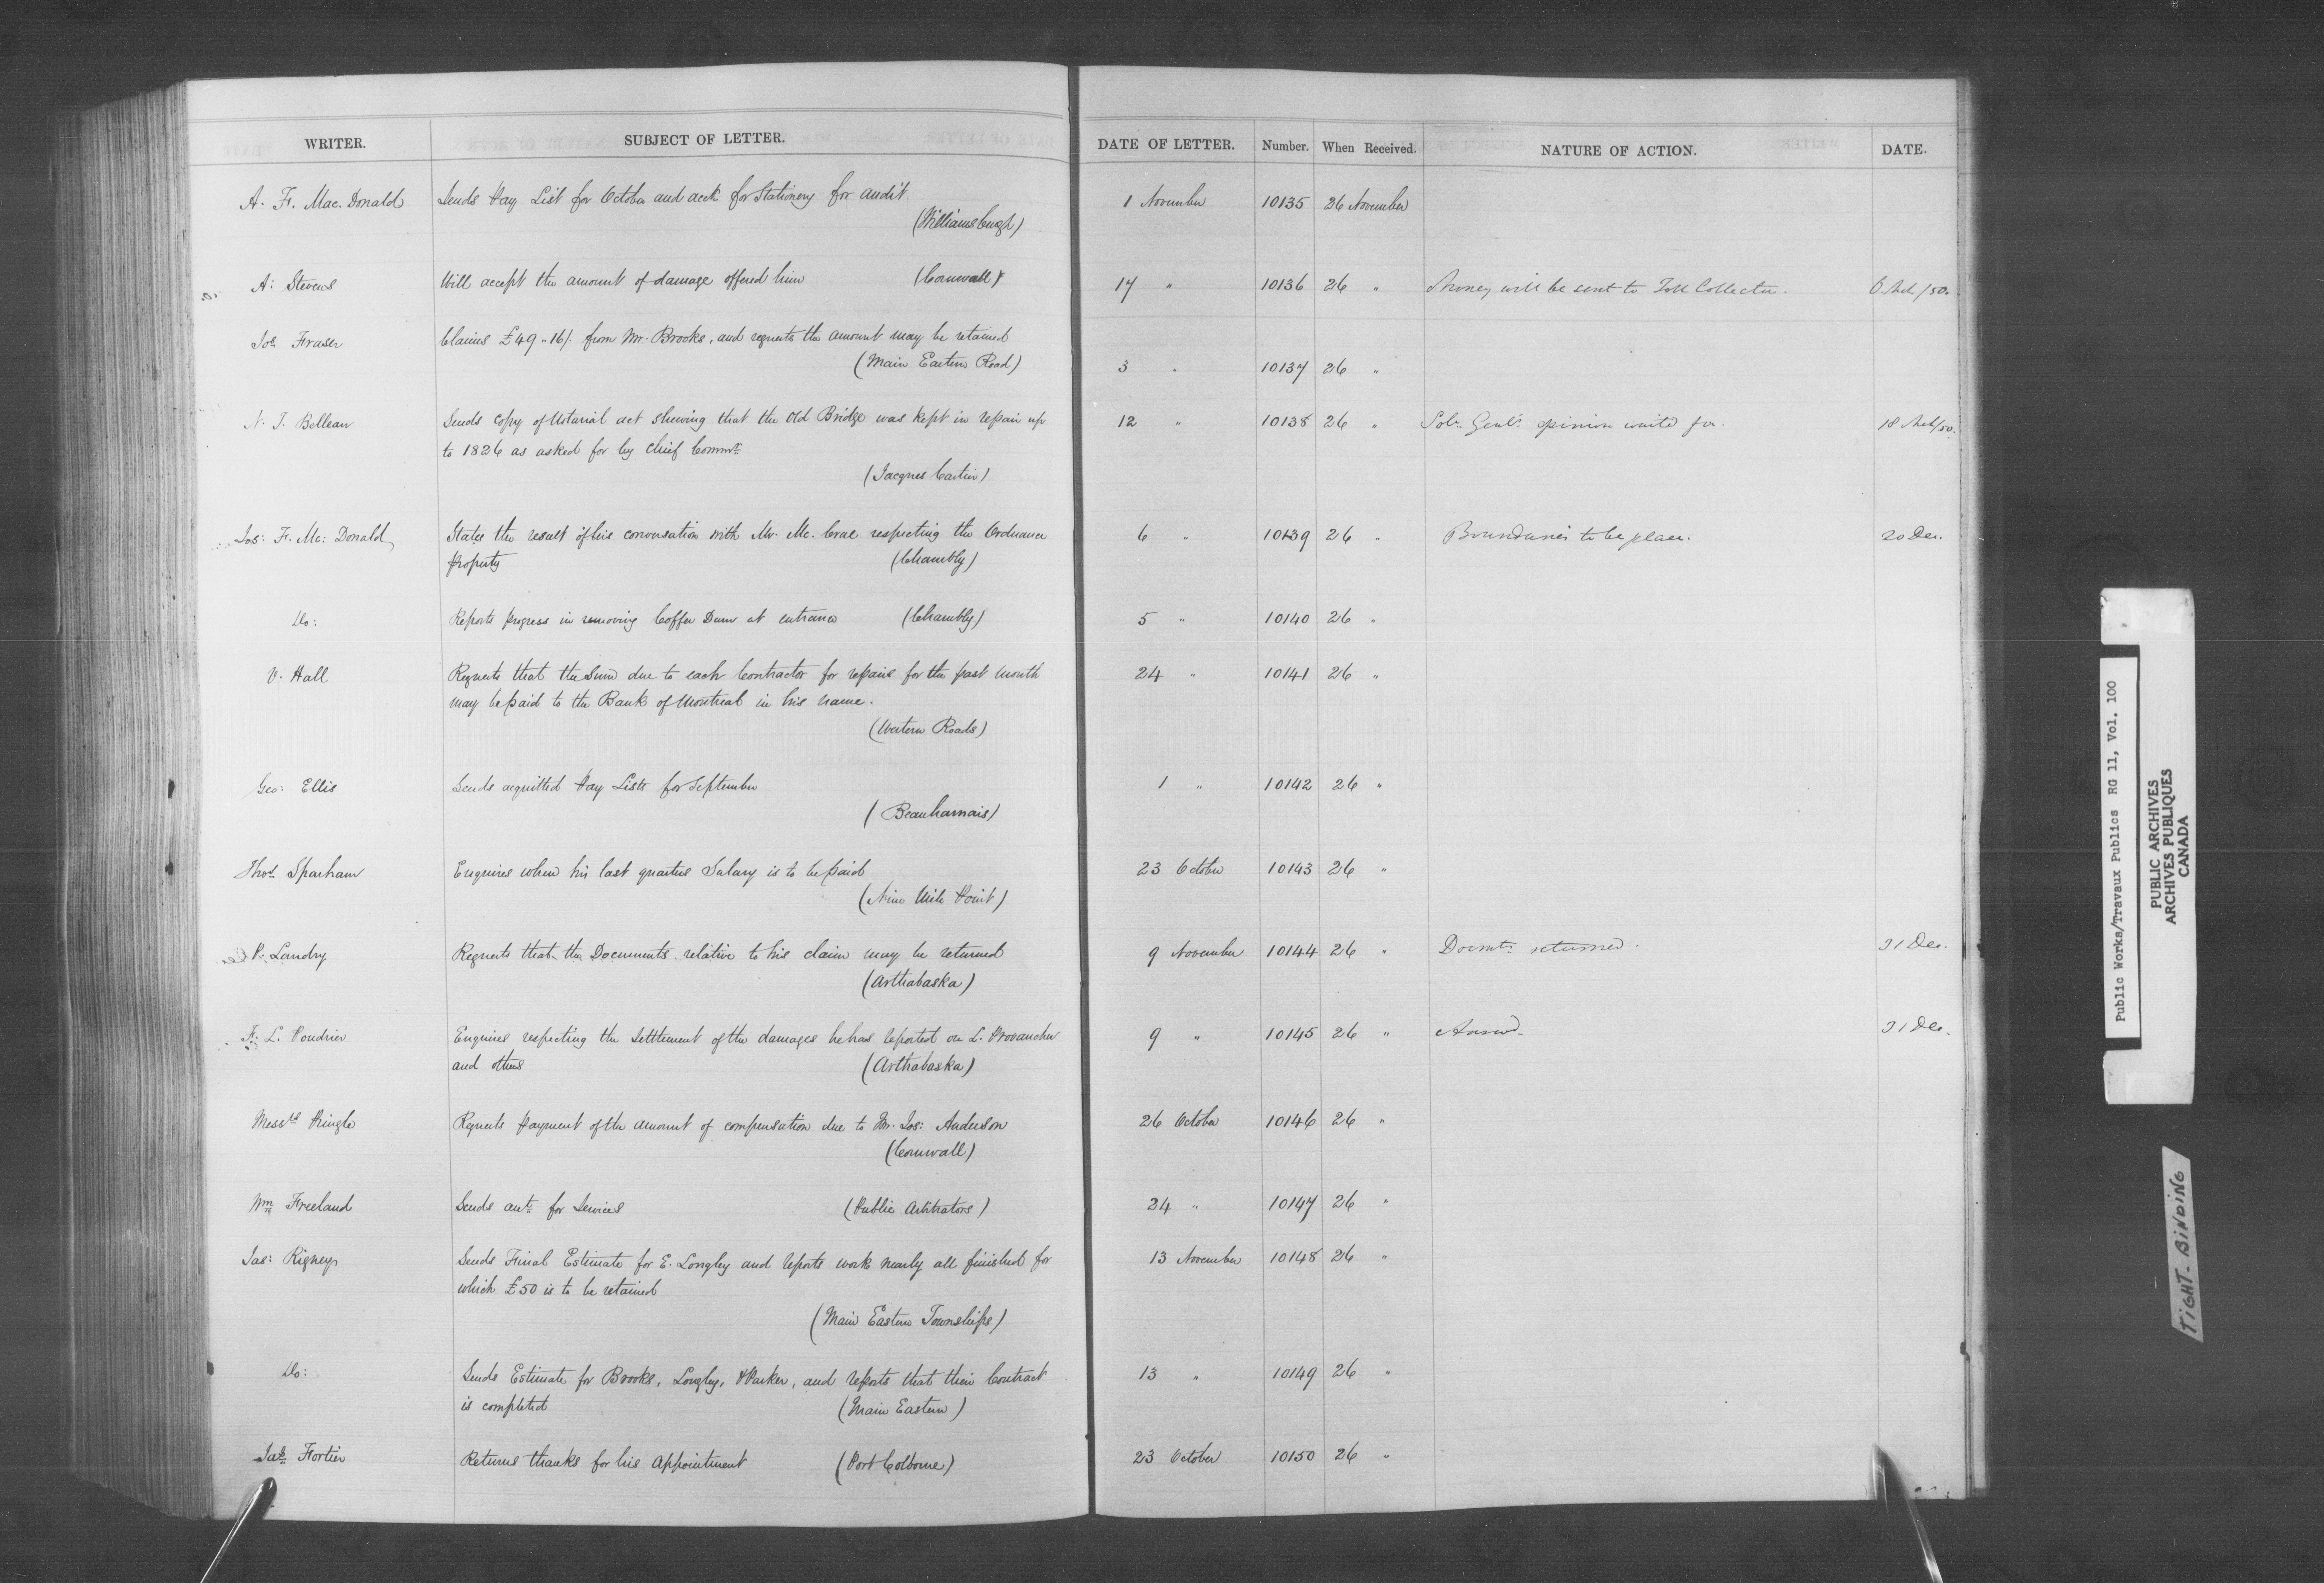 WRITER. SUBJECT OF LETTER. DATE OF LETTER. Number. When Received. NATURE OF ACTION. DATE.
A. F. Mac. Donald Sends Pay List for October and acct for Stationery for audit 1 November 10135 26 November
(Williamsburgh)
A: Stevens Will accept the amount of damage offered him (Cornwall) 17 " 10136 26 " Money will be sent to Toll Collector.
Jos Fraser Claims £49 " 16/ from Mr. Brooks, and requests the amount may be retained
(Main Eastern Road) 3 " 10137 26 "
N. F. Belleau Sends copy of Notarial act shewing that the Old Bridge was kept in repair up 12 " 10138 26 " Solr. Genl's opinion
to 1826 as asked for by chief Commr.
(Jacques Cartier)
Jas: F. Mc: Donald States the result of his conversation with Mr. Mc. Crae respecting the Ordnance 6 " 10139 26 " Boundaries to be 20 Dec.
property (Chambly)
Do: Reports progress in removing Coffer Dam at entrance (Chambly) 5 " 10140 26 "
V. Hall Requests that the Sum due to each Contractor for repairs for the past month 24 " 10141 26 "
may be paid to the Bank of Montreal in his name.
(Western Roads)
Geo: Ellis Sends acquitted Pay Lists for September 1 " 10142 26 "
(Beauharnais)
Thos Sparham Enquires when his last quarters Salary is to be paid 23 October 10143 26 "
(Nine Mile Point)
P. Landry Requests that the Documents relative to his claim may be returned 9 November 10144 26 " Docmts returned. 31 Dec.
(Arthabaska)
F. L. Poudrier Enquires respecting the Settlement of the damages he has reported on L. Provancher 9 " 10145 26 " Answd. 31 Dec.
and others (Arthabaska)
Messrs Pringle Requests payment of the amount of compensation due to Mr. Jos: Anderson 26 October 10146 26 "
(Cornwall)
Wm Freeland Sends acct for Services (Public Arbitrators) 24 " 10147 26 "
Jas: Rigney Sends Final Estimate for E. Longley and reports work nearly all finished for 13 November 10148 26 "
which £50 is to be retained
(Main Eastern Townships)
Do: Sends Estimate for Brooks, Longley, & Parker, and reports that their Contract 13 " 10149 26 "
is completed (Main Eastern)
Jas Fortier Returns thanks for his appointment (Port Colborne) 23 October 10150 26 "
Public Works/Travaux Publics RG 11, Vol. 100
PUBLIC ARCHIVES
ARCHIVES PUBLIQUES
CANADA
TIGHT-BINDING